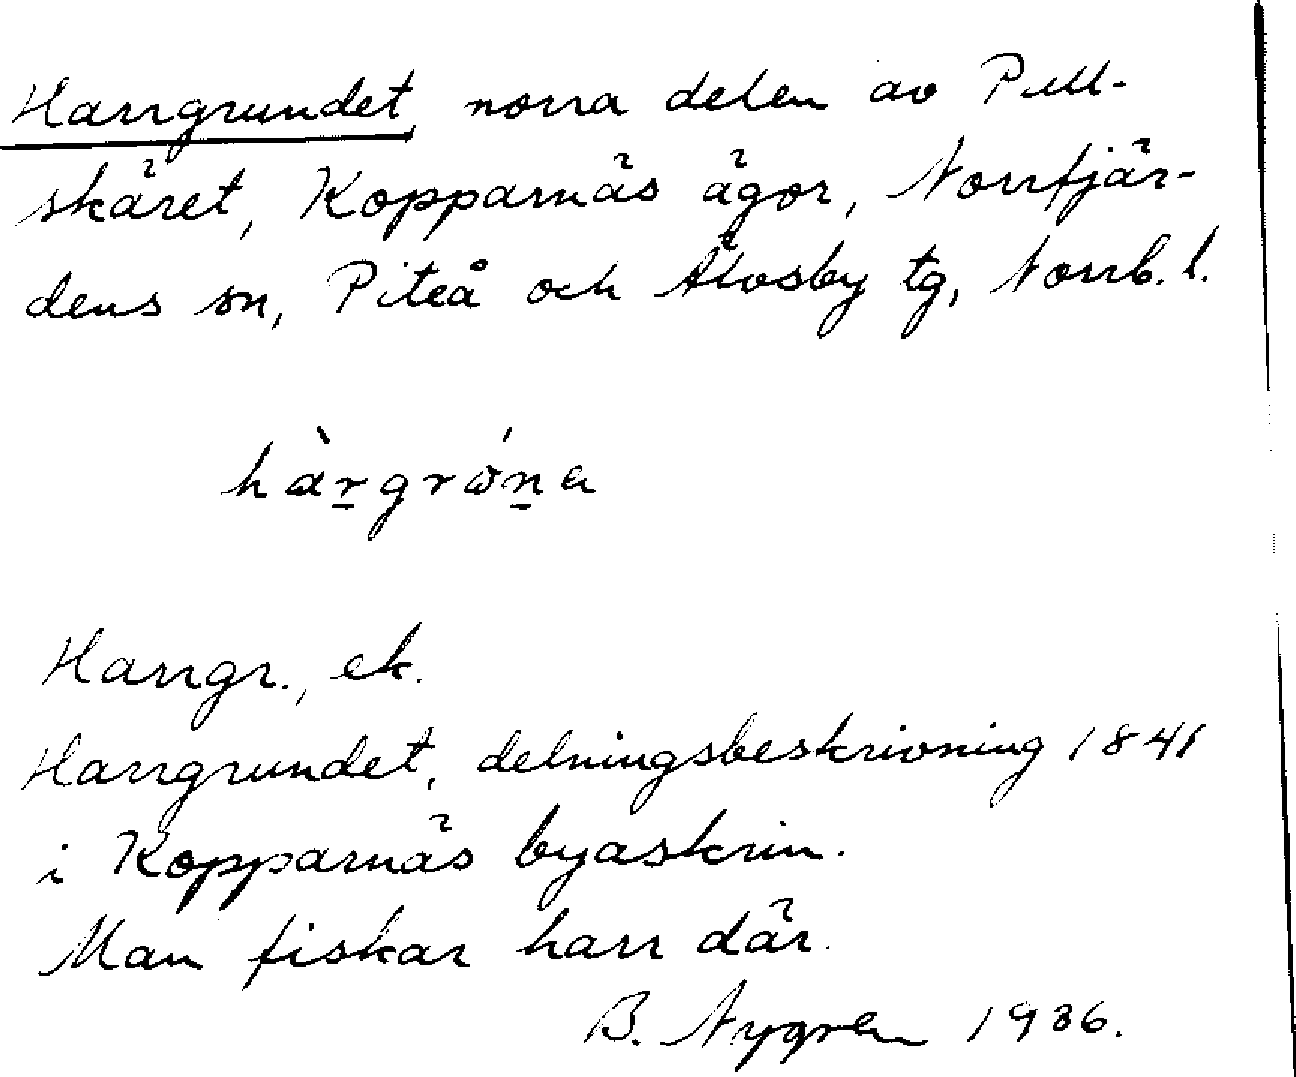 Harrgrundet, norra delen av Pull-
skäret, Kopparnäs ägor, Norrfjär-
dens sn, Piteå och Älvsby tg, Norrb. l.
hàr̲grón̲a
Harrgr., ek.
Harrgrundet, delningsbeskrivning 1841
i Kopparnäs byaskrin.
Man fiskar harr där.
B. Nygren 1936.